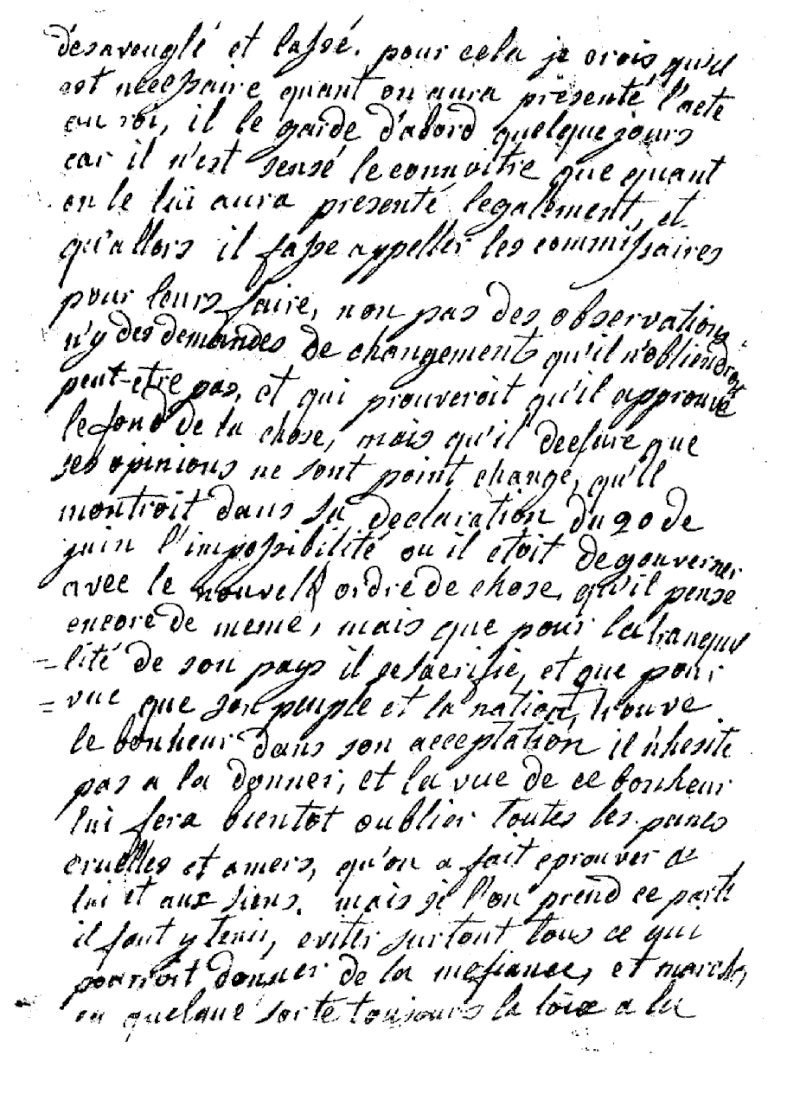 désaveuglé et lassé. pour cela je crois qu'il
est necessaire quant on aura présenté l'acte
au roi, il le garde d'abord quelque jours
car il n'est sensé le connoitre que quant
on le lui aura présenté legalement, et
qu'allors il fasse appeller les commissaires
pour leurs faire, non pas des observations
n'y des demandes de changements qu'il n'obtiendroit
peut-etre pas, et qui prouveroit qu'il approuve
le fond de la chose, mais qu'il declare que
ses opinions ne sont point changé, qu'il
montroit dans sa declaration du 20 de
juin l'impossibilité ou il etoit de gouverner
avec le nouvel ordre de chose, qu'il pense
encore de meme, mais que pour la tranqui
=lité de son pays il se sacrifie, et que pour
=vue que son peuple et la nation, trouve
le bonheur dans son acceptation il n'hesite
pas a la donner, et la vue de ce bonheur
lui fera bientot oublier toutes les peines
cruelles et amers, qu'on a fait eprouver a
lui et aux siens. mais si l'on prend ce parti
il faut y tenir, eviter surtout tous ce qui
pourroit donner de la mefiance, et marcher
en quelque sorte toujours la loix a la